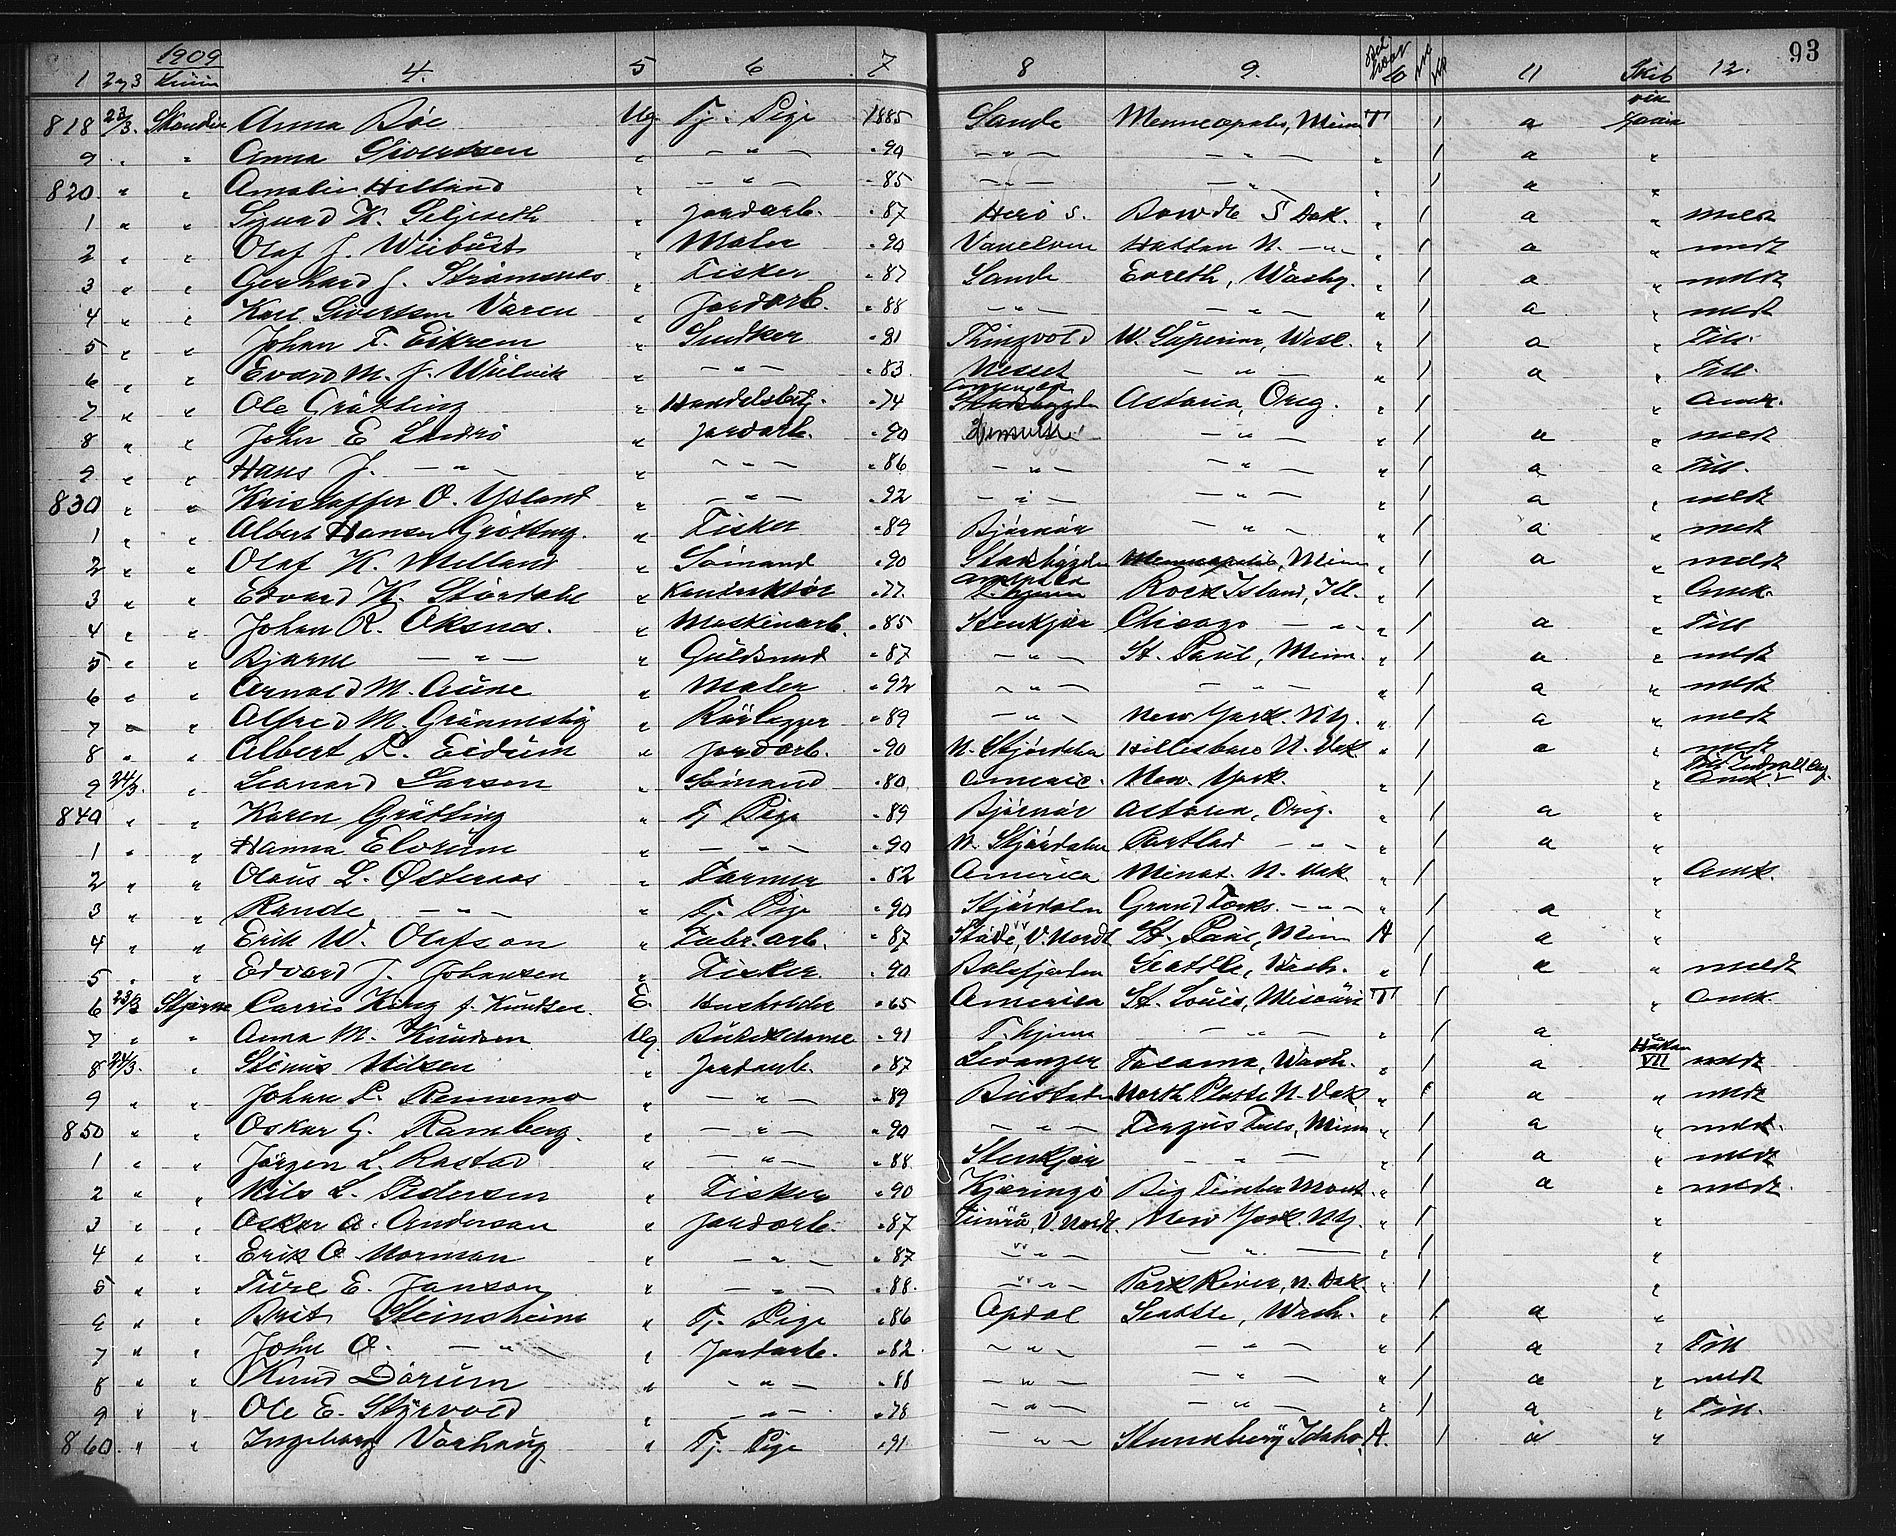 93
1909
1 2 og 3 Linie 4. 5 6 7 8 9. 10 11 Skib 12.
818 23/3. Skandin Anna Böe Ug Tj. Pige 1885 Sande Menneapolis, Minn T 1 a via
9 " " Anna Sivertsen " — " — " 90 — " — — " — " 1 a "
820 " " Amalie Hilland " — " — " 85 — " — — " — " 1 a "
1 " " Sigurd K. Seljeseth " Jordarb. " 87 Herö s. Bowdle S Dak. " 1 a " meldt
2 " " Olaf J. Wiebust " Maler " 90 Vanelven Hattan N. — " — " 1 a " meldt
3 " " Gerhard J. Strømsnes " Fisker " 87 Sande Evreth, Washg. " 1 a " meldt
4 " " Karl Sivertsen Varen " Jordarb. " 88 — " — — " — " 1 a " meldt
5 " " Johan T. Eikrem " Snedker " 81 Thingvold W. Superior, Wisc. " 1 a " Till.
6 " " Edvard M. J. " — " — " 83 Nesset — " — " 1 a " Till.
7 " " Ole Grötting " Handelsbetj. " 74 Astoria, Oreg. " 1 " Amk.
8 " " John E " Jordarb. " 90 — " — " 1 a " meldt
9 " " Hans J. — " — " — " — " 86 — " — — " — " 1 a " Till.
830 " " Kristoffer O. Ysland " — " — " 92 — " — — " — " 1 a " meldt
1 " " Albert Hansen Grötting. " Fisker " 89 Björnör — " — " 1 a " meldt
2 " " Olaf K. Melland " Sömand " 90 Stadsbygden Menneapolis, Minn " 1 a " meldt
3 " " Edvard K. Stördahl " Konduktör " 77 Rock Island, Ill. " 1 " Amk.
4 " " Johan R. Oksnes. " Maskinarb. " 85 Stenkjær Chicago — " — " 1 a " Till
5 " " Bjarne — " — " Guldsmed " 87 — " — St. Paul, Minn. " 1 a " meldt
6 " " Arnold M. Aune " Maler " 92 — " — — " — " 1 a " meldt
7 " " Alfred M. Grönnesby " Rörlegger " 89 — " — New York. NY. " 1 a " meldt
8 " " Albert P. Eidum " Jordarb. " 90 N. Stjördalen Hillesboro N. Dak " 1 a " meldt
9 24/3. " Leonard Larsen " Sömand " 80 Americ. New York. " 1 " Amk.
840 " " Karen Grötting " Tj Pige " 89 Björnör Astoria, Oreg. " 1 a "
1 " " Hanna Elvrum " — " — " 90 N. Stjördalen Portlad — " — " 1 a "
2 " " Olaus L. Østeraas " Farmer " 82 America Minot. N. Dak. " 1 " Amk.
3 " " Rande — " — " Tj. Pige " 90 Stjördalen Grand Forks. — " — " 1 a "
4 " " Erik W. Olafson " Fabr. arb. " 87 Stöde, V. Nordl St. Paul, Minn A 1 a "
5 " " Edvard J. Johansen " Fisker " 90 Balsfjorden Seattle, Wash. " 1 a " meldt
6 23/3 Stjerne Carrie King f. Knudsen. E. Husholder " 65 America St. Louis, Misouri T 1 " Amk.
7 " " Anna M. Knudsen Ug. Butikdame " 91 T.hjem — " — " 1 a "
8 24/3. " Sténus Nilsen " Jordarb. " 87 Levanger Tacoma, Wash. " 1 a Håkon VII meldt
9 " " Johan P. Rennemo " — " — " 89 Bustaden North Platte N. Dak " 1 a " meldt
850 " " Oskar G. Ramberg. " — " — " 90 — " — Fergus Falls, Minn " 1 a " meldt.
1 " " Jörgen L. Rostad " — " — " 88 Stenkjær — " — " 1 a " meldt
2 " " Nils L. Pedersen " Fisker " 90 Kjæringö Big Timber Mont. " 1 a " meldt.
3 " " Oskar A. Anderson " Jordarb. " 87 Timrå, V. Nordl. New York. NY. " 1 "
4 " " Erik O Norman " — " — " 87 — " — — " — " 1 "
5 " " Ture E. Janson " — " — " 88. — " — Park River, N. Dak. " 1 "
6 " " Brit Steinsheim " Tj. Pige " 86 Opdal Seattle, Wash. " 1 a "
7 " " John O. — " — " Jordarb. " 82. — " — — " — " 1 a " Till
8 " " Knud Dörum " — " — " 88 — " — — " — " 1 a " meldt
9 " " Ole E. Styrvold " — " — " 78 — " — — " — " 1 a " Till.
860 " " Ingeborg Vorhaug " Tj. Pige " 91 — " — Idaho A. 1 a "